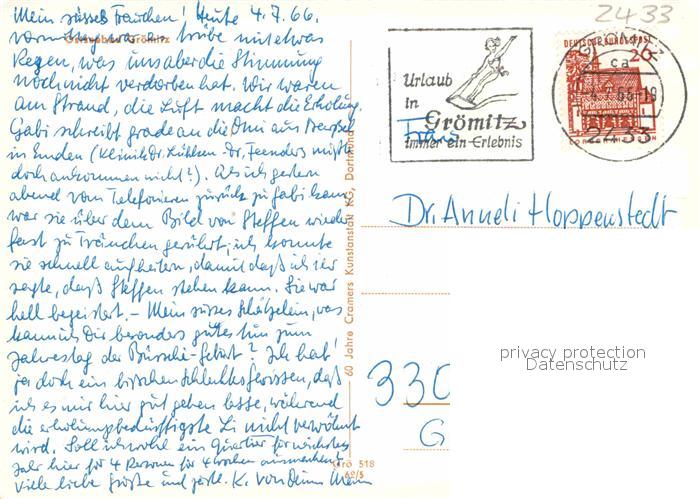 Mein süsses Frauchen! Heute 4.7.66.
vormittag war es trübe mit etwas
Ostseebad Grömitz
Regen, was uns aber die Stimmung
noch nicht verdorben hat. Wir waren
am Strand, die Luft macht die Erholung.
Gabi schreibt grade an die Omi aus
in Emden (Klinik Dr. Lübben - Dr. Feenders müßte
doch ankommen nicht?). Als ich gestern
abend vom Telefonieren zurück zu Gabi kam,
war sie über dem Bild von Steffen wieder
fast zu Tränchen gerührt; ich konnte
sie schnell aufheitern, damit daß ich ihr
sagte, daß Steffen stehen kann. Sie war
hell begeistert. - Mein süsses Schätzelein, was
kann ich Dir besonders gutes tun zum
Jahrestag der Geburt? Ich hab'
ja doch ein bißchen schlechtes Gewissen, daß
ich es mir hier gut gehen lasse, während
die erholungsbedürftigste Li nicht verwöhnt
wird. Soll ich wohl ein Quartier für nächstes
Jahr hier für 4 Personen für 4 Wochen ausmachen?
viele liebe Grüße und K. von Deinem Mann
60 Jahre Cramers Kunstanstalt KG, Dortmund
Grö 518
62/5
2433
Urlaub
in
Grömitz
immer ein Erlebnis
DEUTSCHE BUNDESPOST
20
GRÖMITZ
ca
4.7.66-19
2433
LORSCH/HESSEN
Frau
Dr. Anneli Hoppenstedt
privacy protection
Datenschutz
330
G